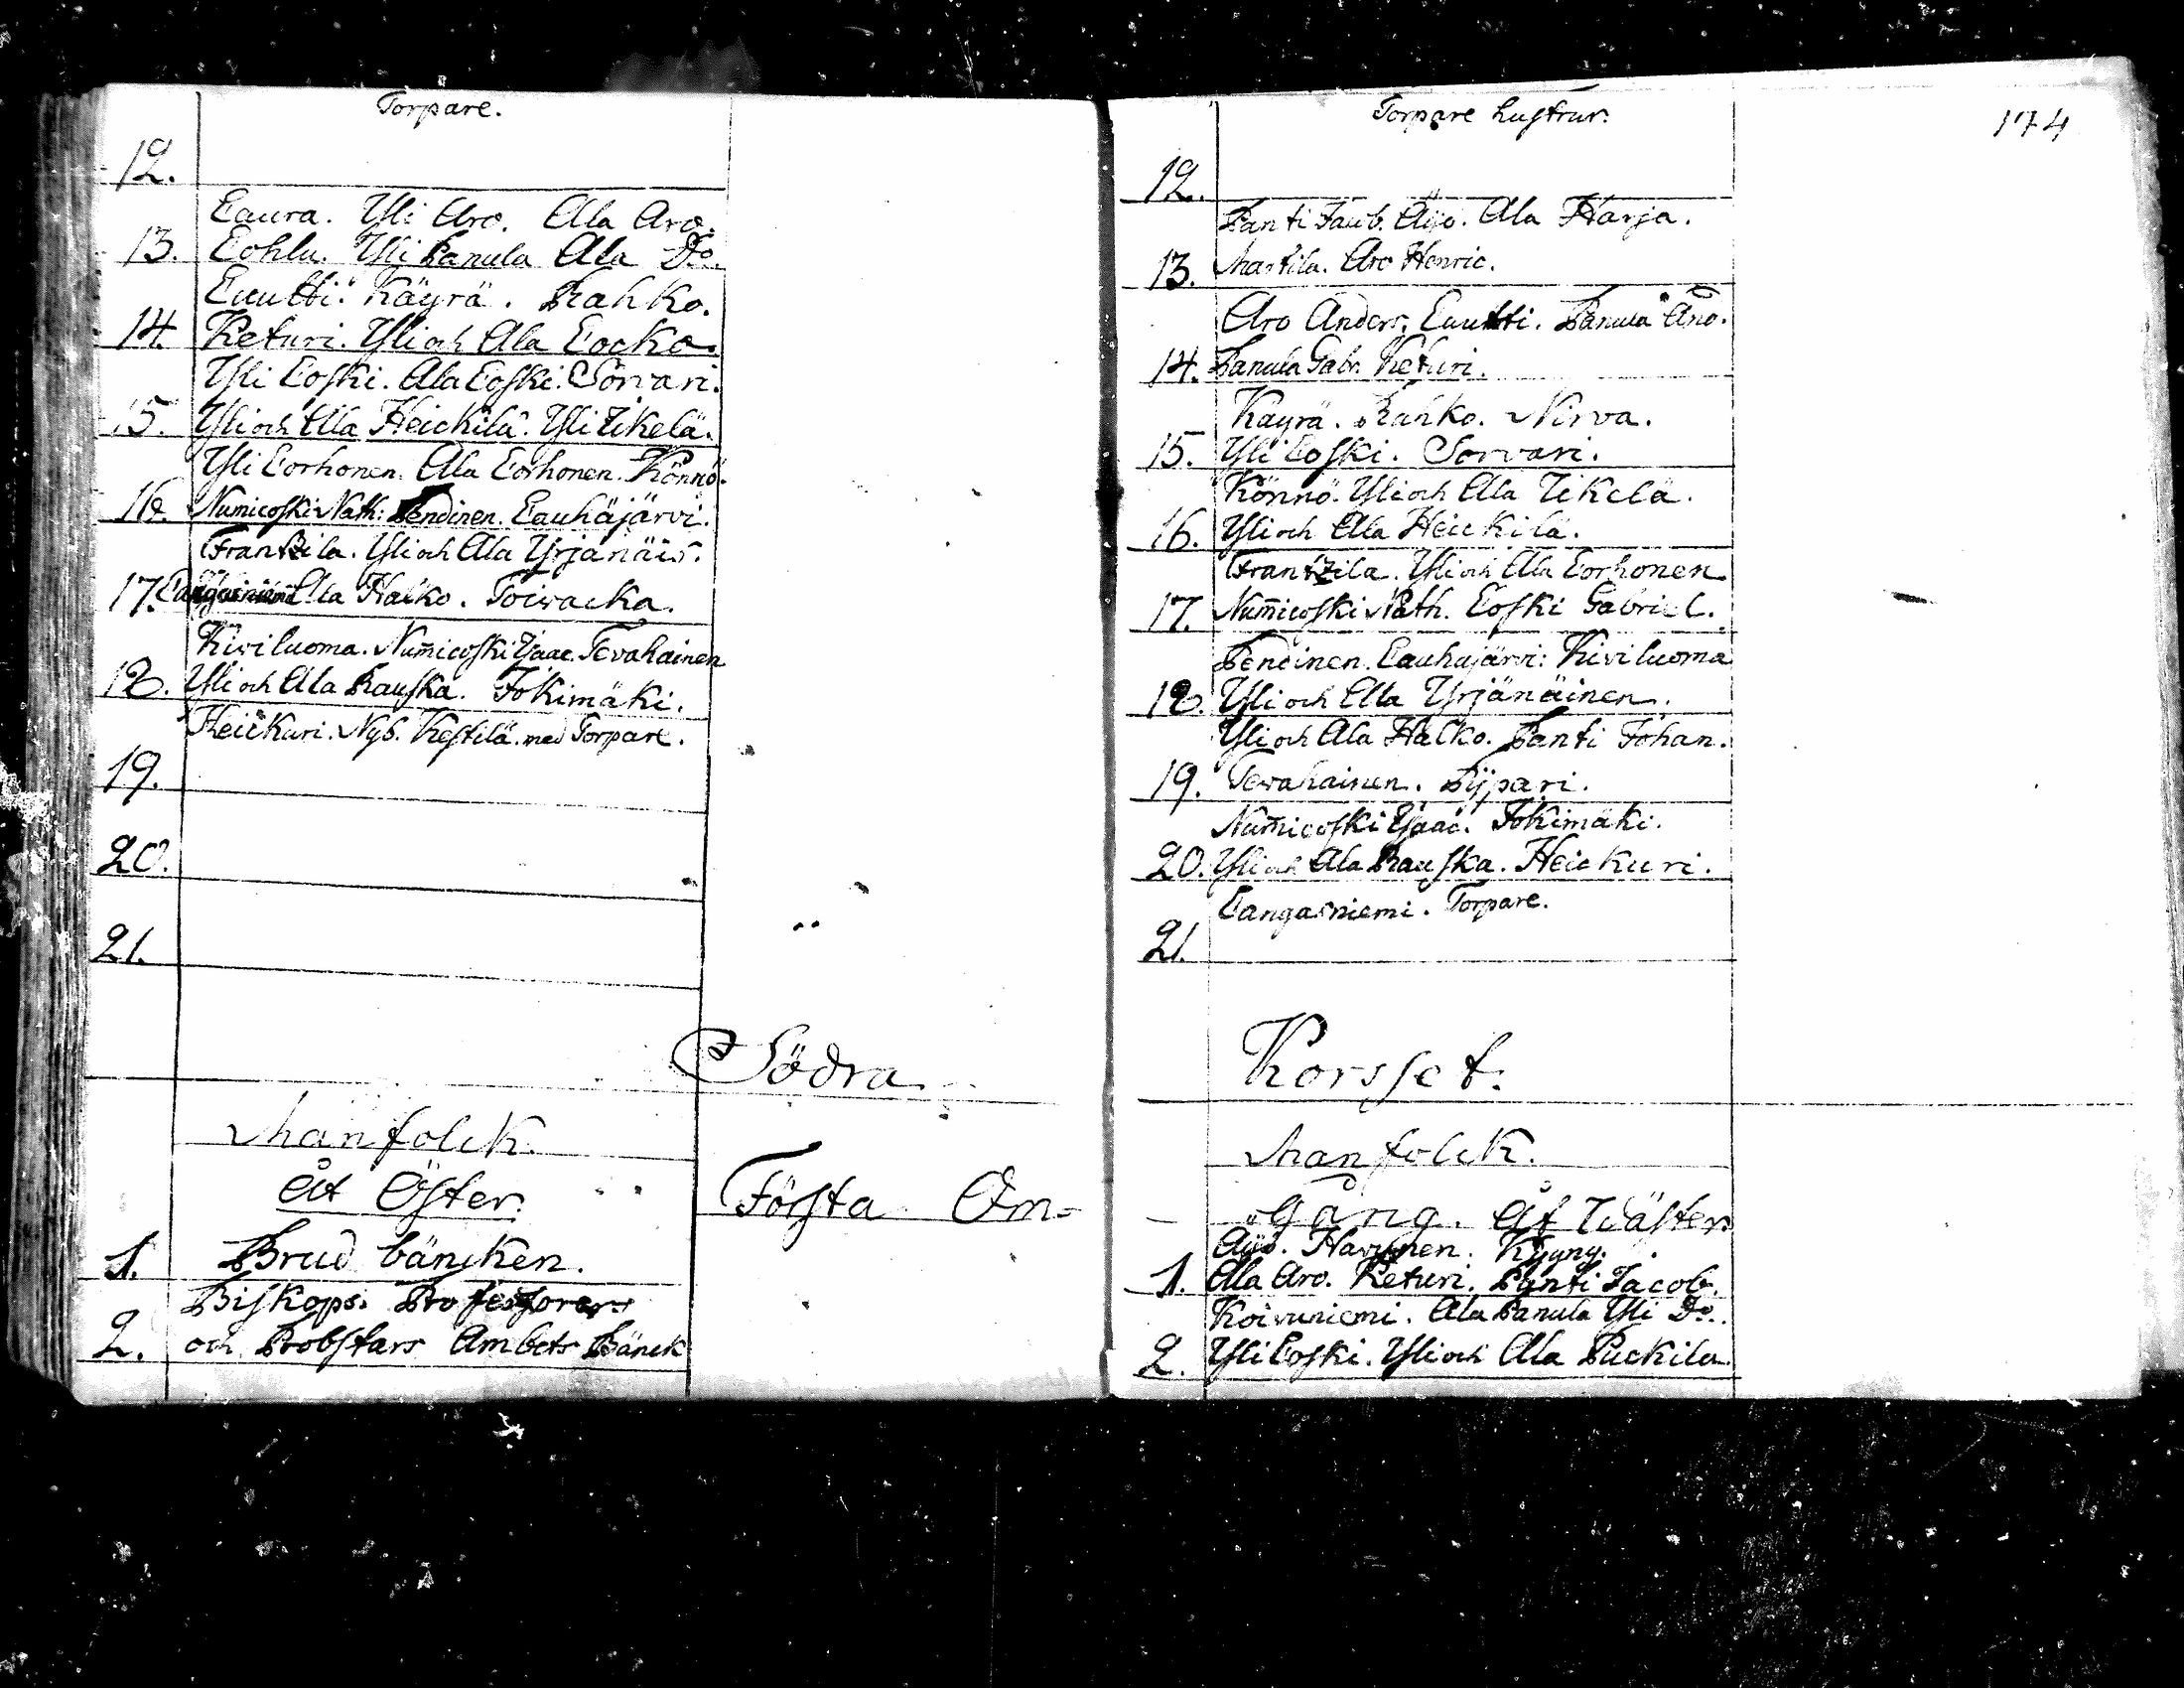 Torpare.
12.
Laura. Yli Aro. Ala Aro.
13. Lohlu. Yli Panula Ala Do.
Luutti. Käyrä. Rahko.
14. Keturi. Yli och Ala Locko.
Yli Loski. Ala Loski. Sorvari.
15. Yli och Ala Heickilä. Yli Ikelä.
Yli Lorhonen. Ala Lorhonen. Könnö.
16. Numicoski Nath: Pendinen. Lauhajärvi.
Frantzila. Yli och Ala Yrjänäis.
17. Ala Halko. Toiwacka.
Kiviluoma. Num̄icoski Isaac. Tevahainen
18. Yli och Ala Rauska. Jokimäki.
Heickuri. Nyb. Kestilä med Torpare.
19.
20.
21.
Södra
Manfolck.
åt Öster.
Första Om-
1. Brud bäncken.
Biskops. Professorers
2. och Probstars Ambets Bänck
174
Torpare hustrur.
12.
Panti Jacob. Äijö. Ala Harja.
13. Martila. Aro Henric.
Aro Anders. Luutti. Panula And.
14. Panula Gabr. Keturi.
Käyrä. Rahko. Nirva.
15. Yli Loski. Sorvari.
Könnö. Yli och Ala Ikelä.
16. Yli och Ala Heickilä.
Frantzila. Yli och Ala Lorhonen
17. Num̄icoski Nath. Loski Gabriel.
Pendinen. Lauhajärvi. Kiviluoma
18. Yli och Ala Yrjänäinen.
Yli och Ala Halko. Panti Johan.
19. Tevahainen. Pijpari.
Num̄icoski Isaac. Jokimäki.
20. Yli och Ala Rauska. Heickuri.
Langasniemi. Torpare.
21.
Korsset.
Manfolck.
Gång. åt Wäster.
Äijö.
1. Ala Aro. Keturi. Panti Jacob.
Koivuniemi. Ala Panula Yli Do.
2. Yli Loski. Yli och Ala Puckila.